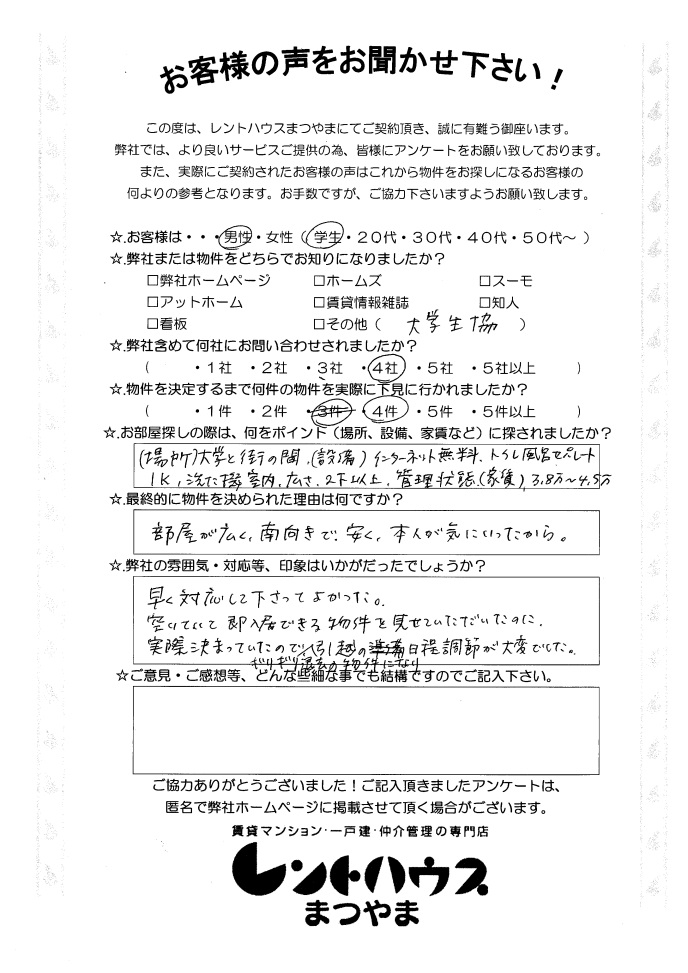 お客様の声をお聞かせ下さい！
この度は、レントハウスまつやまにてご契約頂き、誠に有難う御座います。
弊社では、より良いサービスご提供の為、皆様にアンケートをお願い致しております。
また、実際にご契約されたお客様の声はこれから物件をお探しになるお客様の
何よりの参考となります。お手数ですが、ご協力下さいますようお願い致します。
☆.お客様は・・・男性・女性（ 学生・２０代・３０代・４０代・５０代～ ）
☆.弊社または物件をどちらでお知りになりましたか？
□弊社ホームページ □ホームズ □スーモ
□アットホーム □賃貸情報雑誌 □知人
□看板 □その他（ 大学生協 ）
☆.弊社含めて何社にお問い合わせされましたか？
（ ・１社 ・２社 ・３社 ・４社 ・５社 ・５社以上 ）
☆.物件を決定するまで何件の物件を実際に下見に行かれましたか？
（ ・１件 ・２件 ・３件 ・４件 ・５件 ・５件以上 ）
☆.お部屋探しの際は、何をポイント（場所、設備、家賃など）に探されましたか？
(場所)大学と街の間、(設備)インターネット無料、トイレ風呂セパレート
1K、洗たく機室内、広さ、2F以上、管理状態、(家賃)3.8万～4.5万
☆.最終的に物件を決められた理由は何ですか？
部屋が広く、南向きで、安く、本人が気にいったから。
☆.弊社の雰囲気・対応等、印象はいかがだったでしょうか？
早く対応して下さってよかった。
空いていて即入居できる物件を見せていただいたのに、
実際決まっていたので引越の準備日程調節が大変でした。
ギリギリ退去の物件になり
☆ご意見・ご感想等、どんな些細な事でも結構ですのでご記入下さい。
ご協力ありがとうございました！ご記入頂きましたアンケートは、
匿名で弊社ホームページに掲載させて頂く場合がございます。
賃貸マンション・一戸建・仲介管理の専門店
レントハウス
まつやま